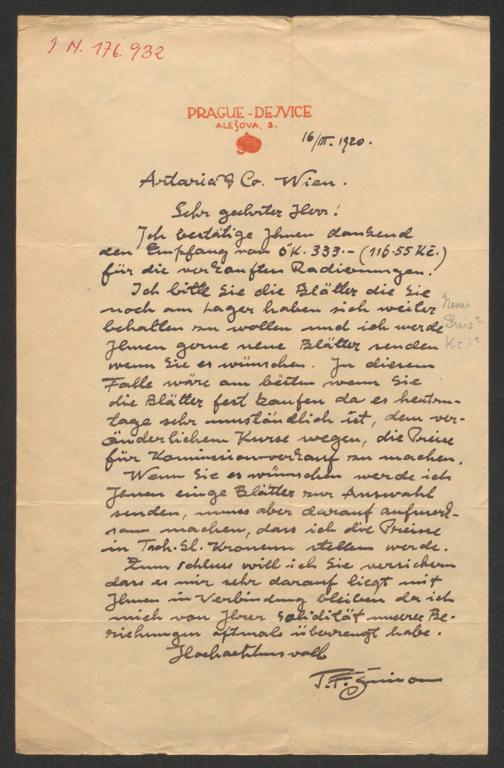 I. N. 176.932
PRAGUE-DEJVICE
ALEŠOVA, 3.
16/III. 1920.
Artaria & Co. Wien.
Sehr geehrter Herr!
Ich bestätige Ihnen dankend
den Empfang von ÖK. 333.- (116·55 Kč.)
für die verkauften Radierungen.
Ich bitte Sie die Blätter die Sie
noch am Lager haben sich weiter
behalten zu wollen und ich werde
Ihnen gerne neue Blätter senden
wenn Sie es wünschen. In diesem
Falle wäre am besten wenn Sie
die Blätter fest kaufen da es heutzu-
tage sehr umständlich ist, dem ver-
änderlichem Kurse wegen, die Preise
für Komissionverkauf zu machen.
Wenn Sie es wünschen werde ich
Ihnen einge Blätter zur Auswahl
senden, muss aber darauf aufmerk-
sam machen, dass ich die Preise
in Tsch. Sl. Kronenn stellen werde.
Zum Schluss will ich Sie versichern
dass es mir sehr darauf liegt mit
Ihnen in Verbindung bleiben da ich
mich von Ihrer Solidität unserer Be-
ziehungen oftmals überzeugt habe.
Hochachtungsvoll
T. F. Šimon
Neue
Preis?
Kc.?